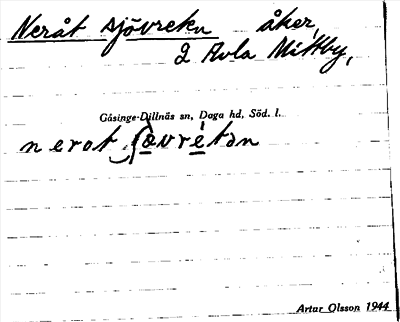 Neråt sjövreten åker,
2 Avla Mittby,
Gåsinge-Dillnäs sn, Daga hd, Söd. l.
nerot
Artur Olsson 1944